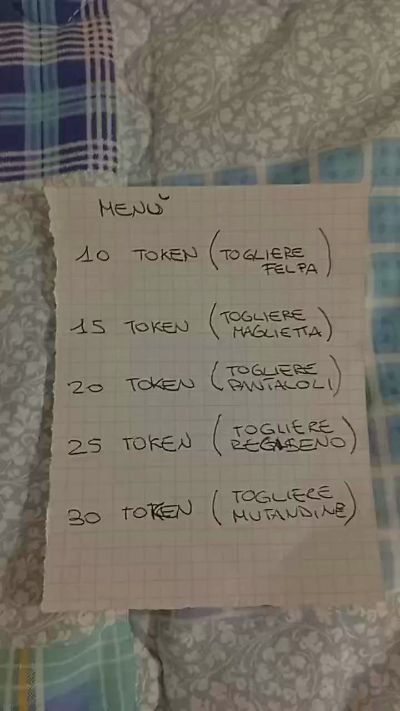 MENÙ
10 TOKEN (TOGLIERE
FELPA)
15 TOKEN (TOGLIERE
MAGLIETTA)
20 TOKEN (TOGLIERE
PANTALOLI)
25 TOKEN (TOGLIERE
REGISENO)
30 TOKEN (TOGLIERE
MUTANDINE)